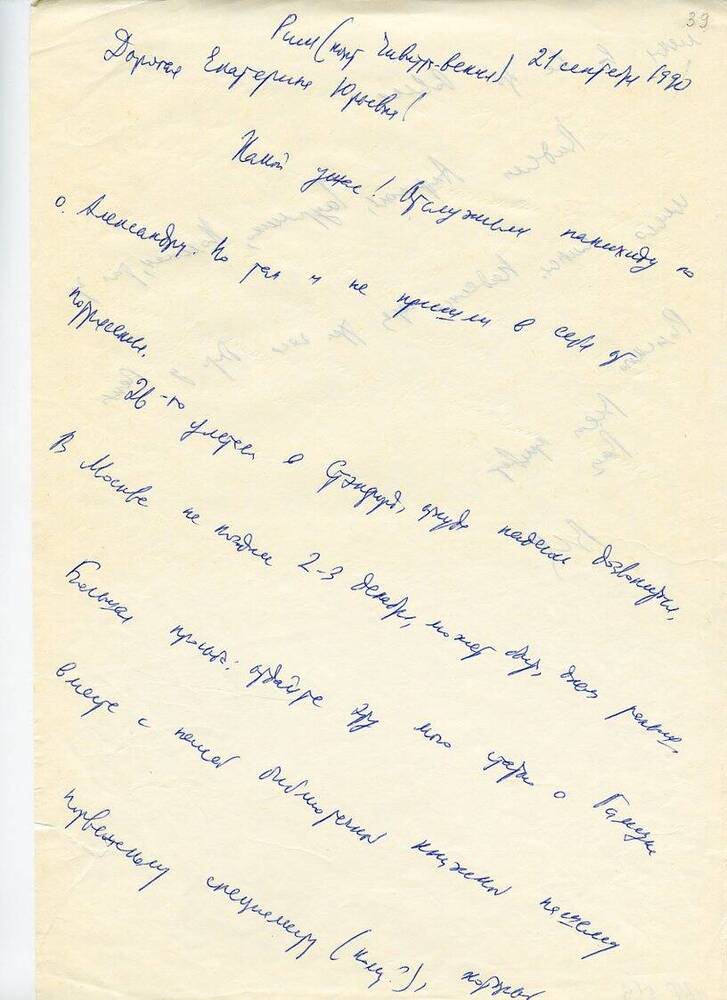 39
Рим (пока Чивита-Веккия) 21 сентября 1990
Дорогая Екатерина Юрьевна!
Какой ужас! Отслужили панихиду по
о. Александру. Но так и не пришли в себя от
потрясения.
26-го улетаем в Стэнфорд, откуда надеемся дозвониться.
В Москве не позднее 2-3 декабря, может быть, днем раньше.
Большая просьба: отдайте эту мою статью о
вместе с нашей библиотечной книжкой нашему
специалисту (Кому?), который